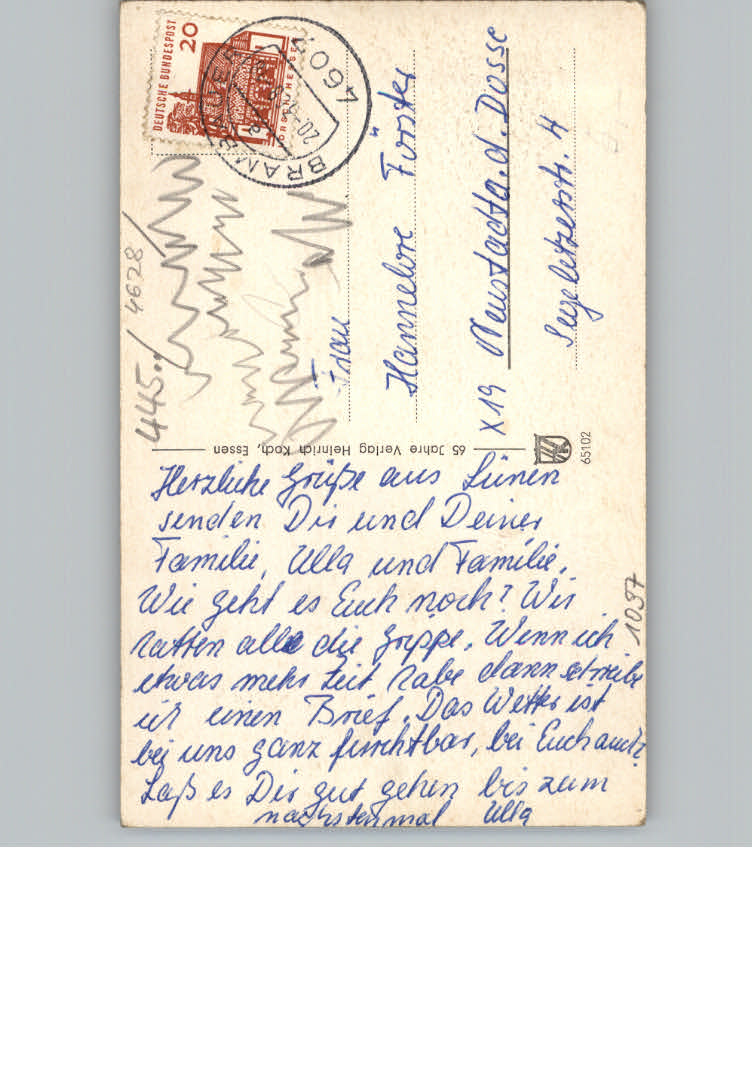 Herzliche Grüße aus Lünen
senden Dir und Deiner
Familie, Ulla und Familie.
Wie geht es Euch noch? Wir
hatten alle die Grippe. Wenn ich
etwas mehr Zeit habe dann schreibe
ich einen Brief. Das Wetter ist
bei uns ganz furchtbar, bei Euch auch?
Laß es Dir gut gehen bis zum
nächstenmal Ulla
1097
65 Jahre Verlag Heinrich Koch, Essen
65102
445.. / 4628 /
DEUTSCHE BUNDESPOST
20
LORSCH/HESSEN
4603
BRAMBAUER
Frau
Hannelore Förster
X19 Neustadt a. d. Dosse
Segeletzerstr. 4